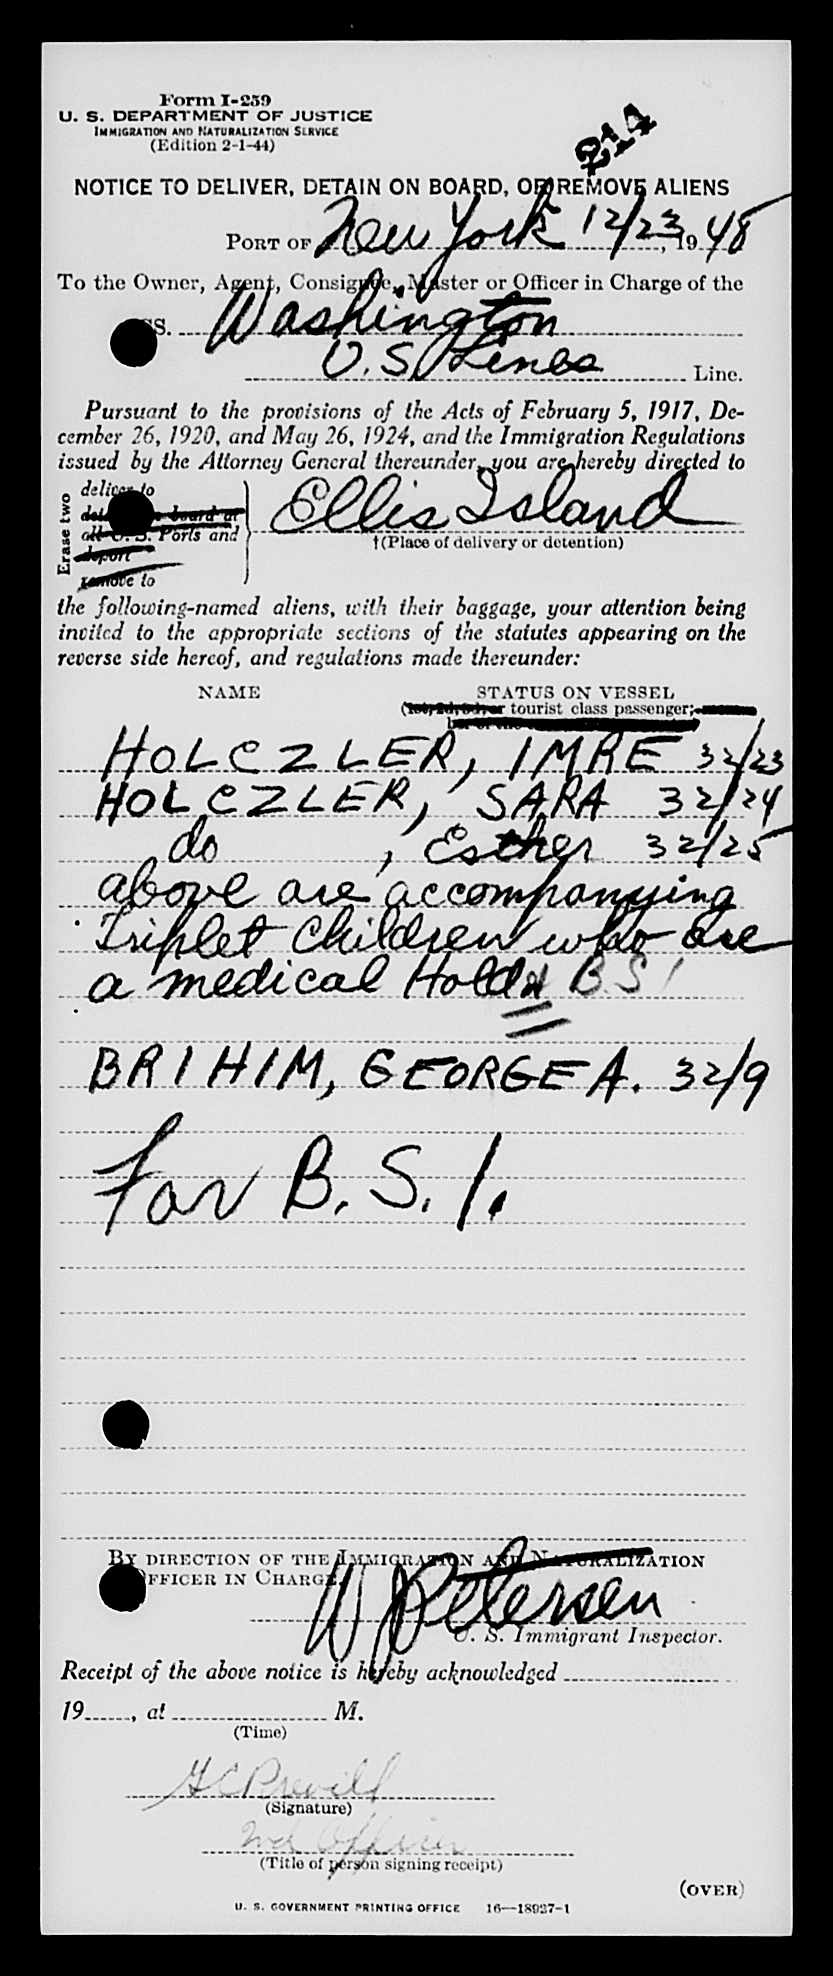 Form I-259
U. S. DEPARTMENT OF JUSTICE
IMMIGRATION AND NATURALIZATION SERVICE
(Edition 2-1-44)
214
NOTICE TO DELIVER, DETAIN ON BOARD, OR REMOVE ALIENS
PORT OF New York 12/23, 1948
To the Owner, Agent, Consignee, Master or Officer in Charge of the
SS. Washington
U.S. Lines Line.
Pursuant to the provisions of the Acts of February 5, 1917, De-
cember 26, 1920, and May 26, 1924, and the Immigration Regulations
issued by the Attorney General thereunder, you are hereby directed to
Erase two
deliver to
board at
all U. S. Ports and
deport
remove to
Ellis Island
†(Place of delivery or detention)
the following-named aliens, with their baggage, your attention being
invited to the appropriate sections of the statutes appearing on the
reverse side hereof, and regulations made thereunder:
NAME STATUS ON VESSEL
(1st, 2d, 3d, or tourist class passenger;
HOLCZLER, IMRE 32/23
HOLCZLER, SARA 32/24
do , Esther 32/25
above are accompanying
Triplet Children who are
a medical Hold B.S.I
BRIHIM, GEORGE A. 32/9
For B.S.I.
BY DIRECTION OF THE IMMIGRATION AND NATURALIZATION
OFFICER IN CHARGE
W J Petersen
U. S. Immigrant Inspector.
Receipt of the above notice is hereby acknowledged
19 , at M.
(Time)
(Signature)
2nd Officer
(Title of person signing receipt)
(OVER)
U. S. GOVERNMENT PRINTING OFFICE 16—18927-1